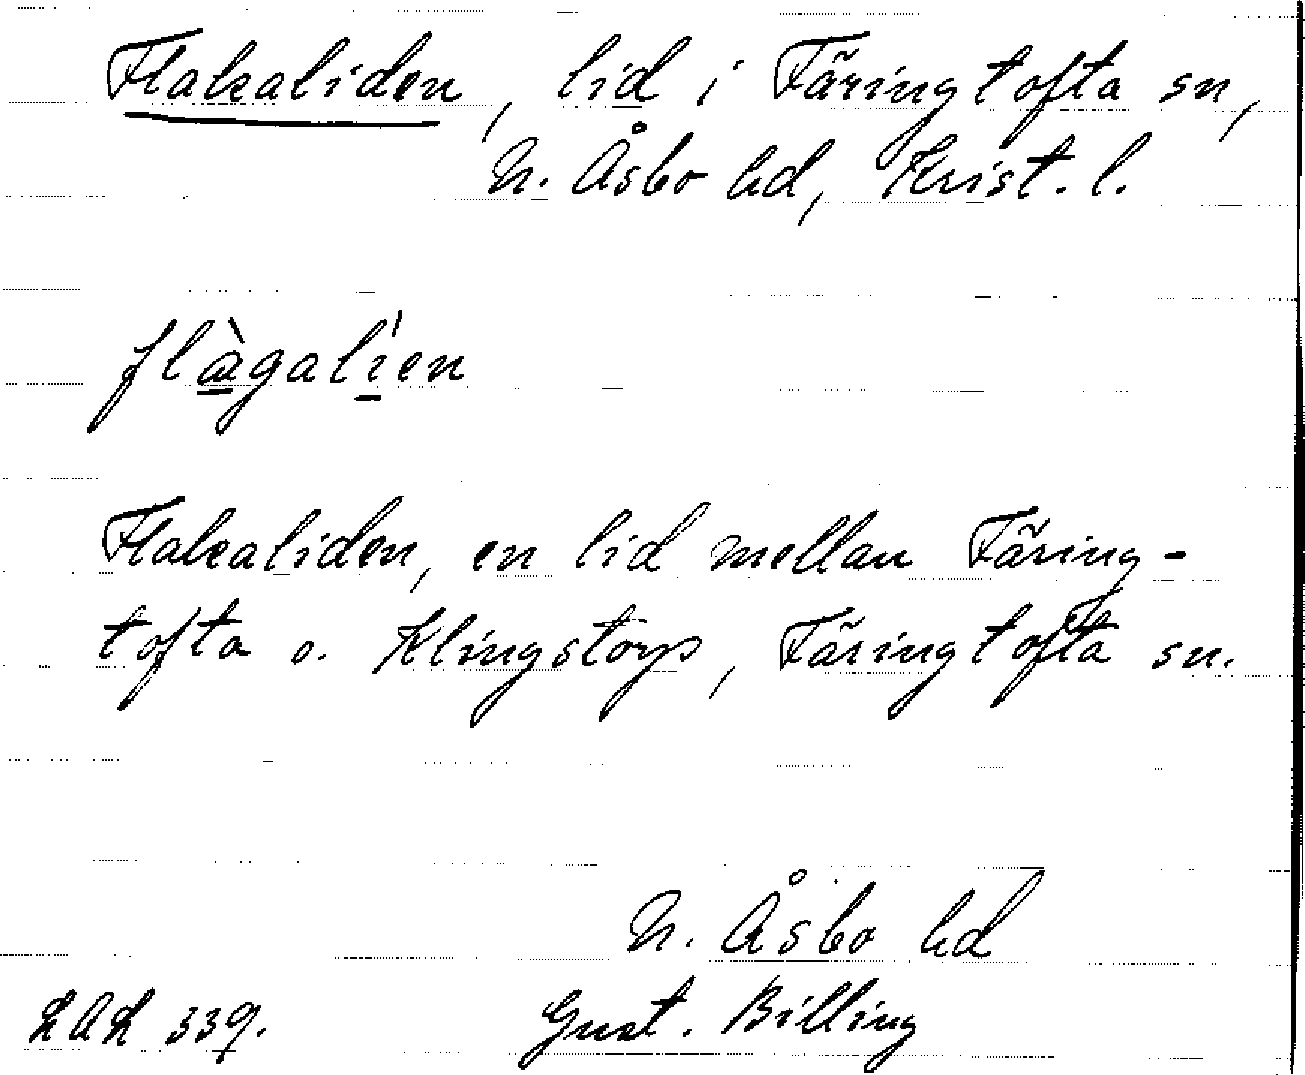 Flakaliden, lid i Färingtofta sn,
N. Åsbo hd, Krist. l.
flàgalíen
Flakaliden, en lid mellan Färing-
tofta o. Klingstorp, Färingtofta sn.
N. Åsbo hd
LAL 339. Gust. Billing